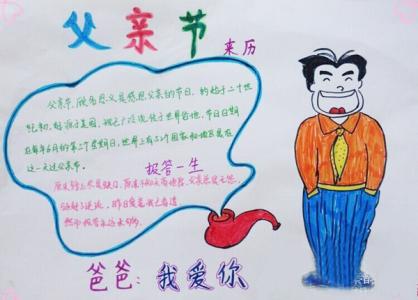 父亲节 来历
父亲节，顾名思义是感恩父亲的节日，约始于二十世
纪初，起源于美国，现已广泛流传于世界各地，节日日期
在每年6月的第三个星期日，世界上有52个国家和地区是在
这一天过父亲节。
报答一生
父亲总是无怨
然而报答
爸爸：我爱你